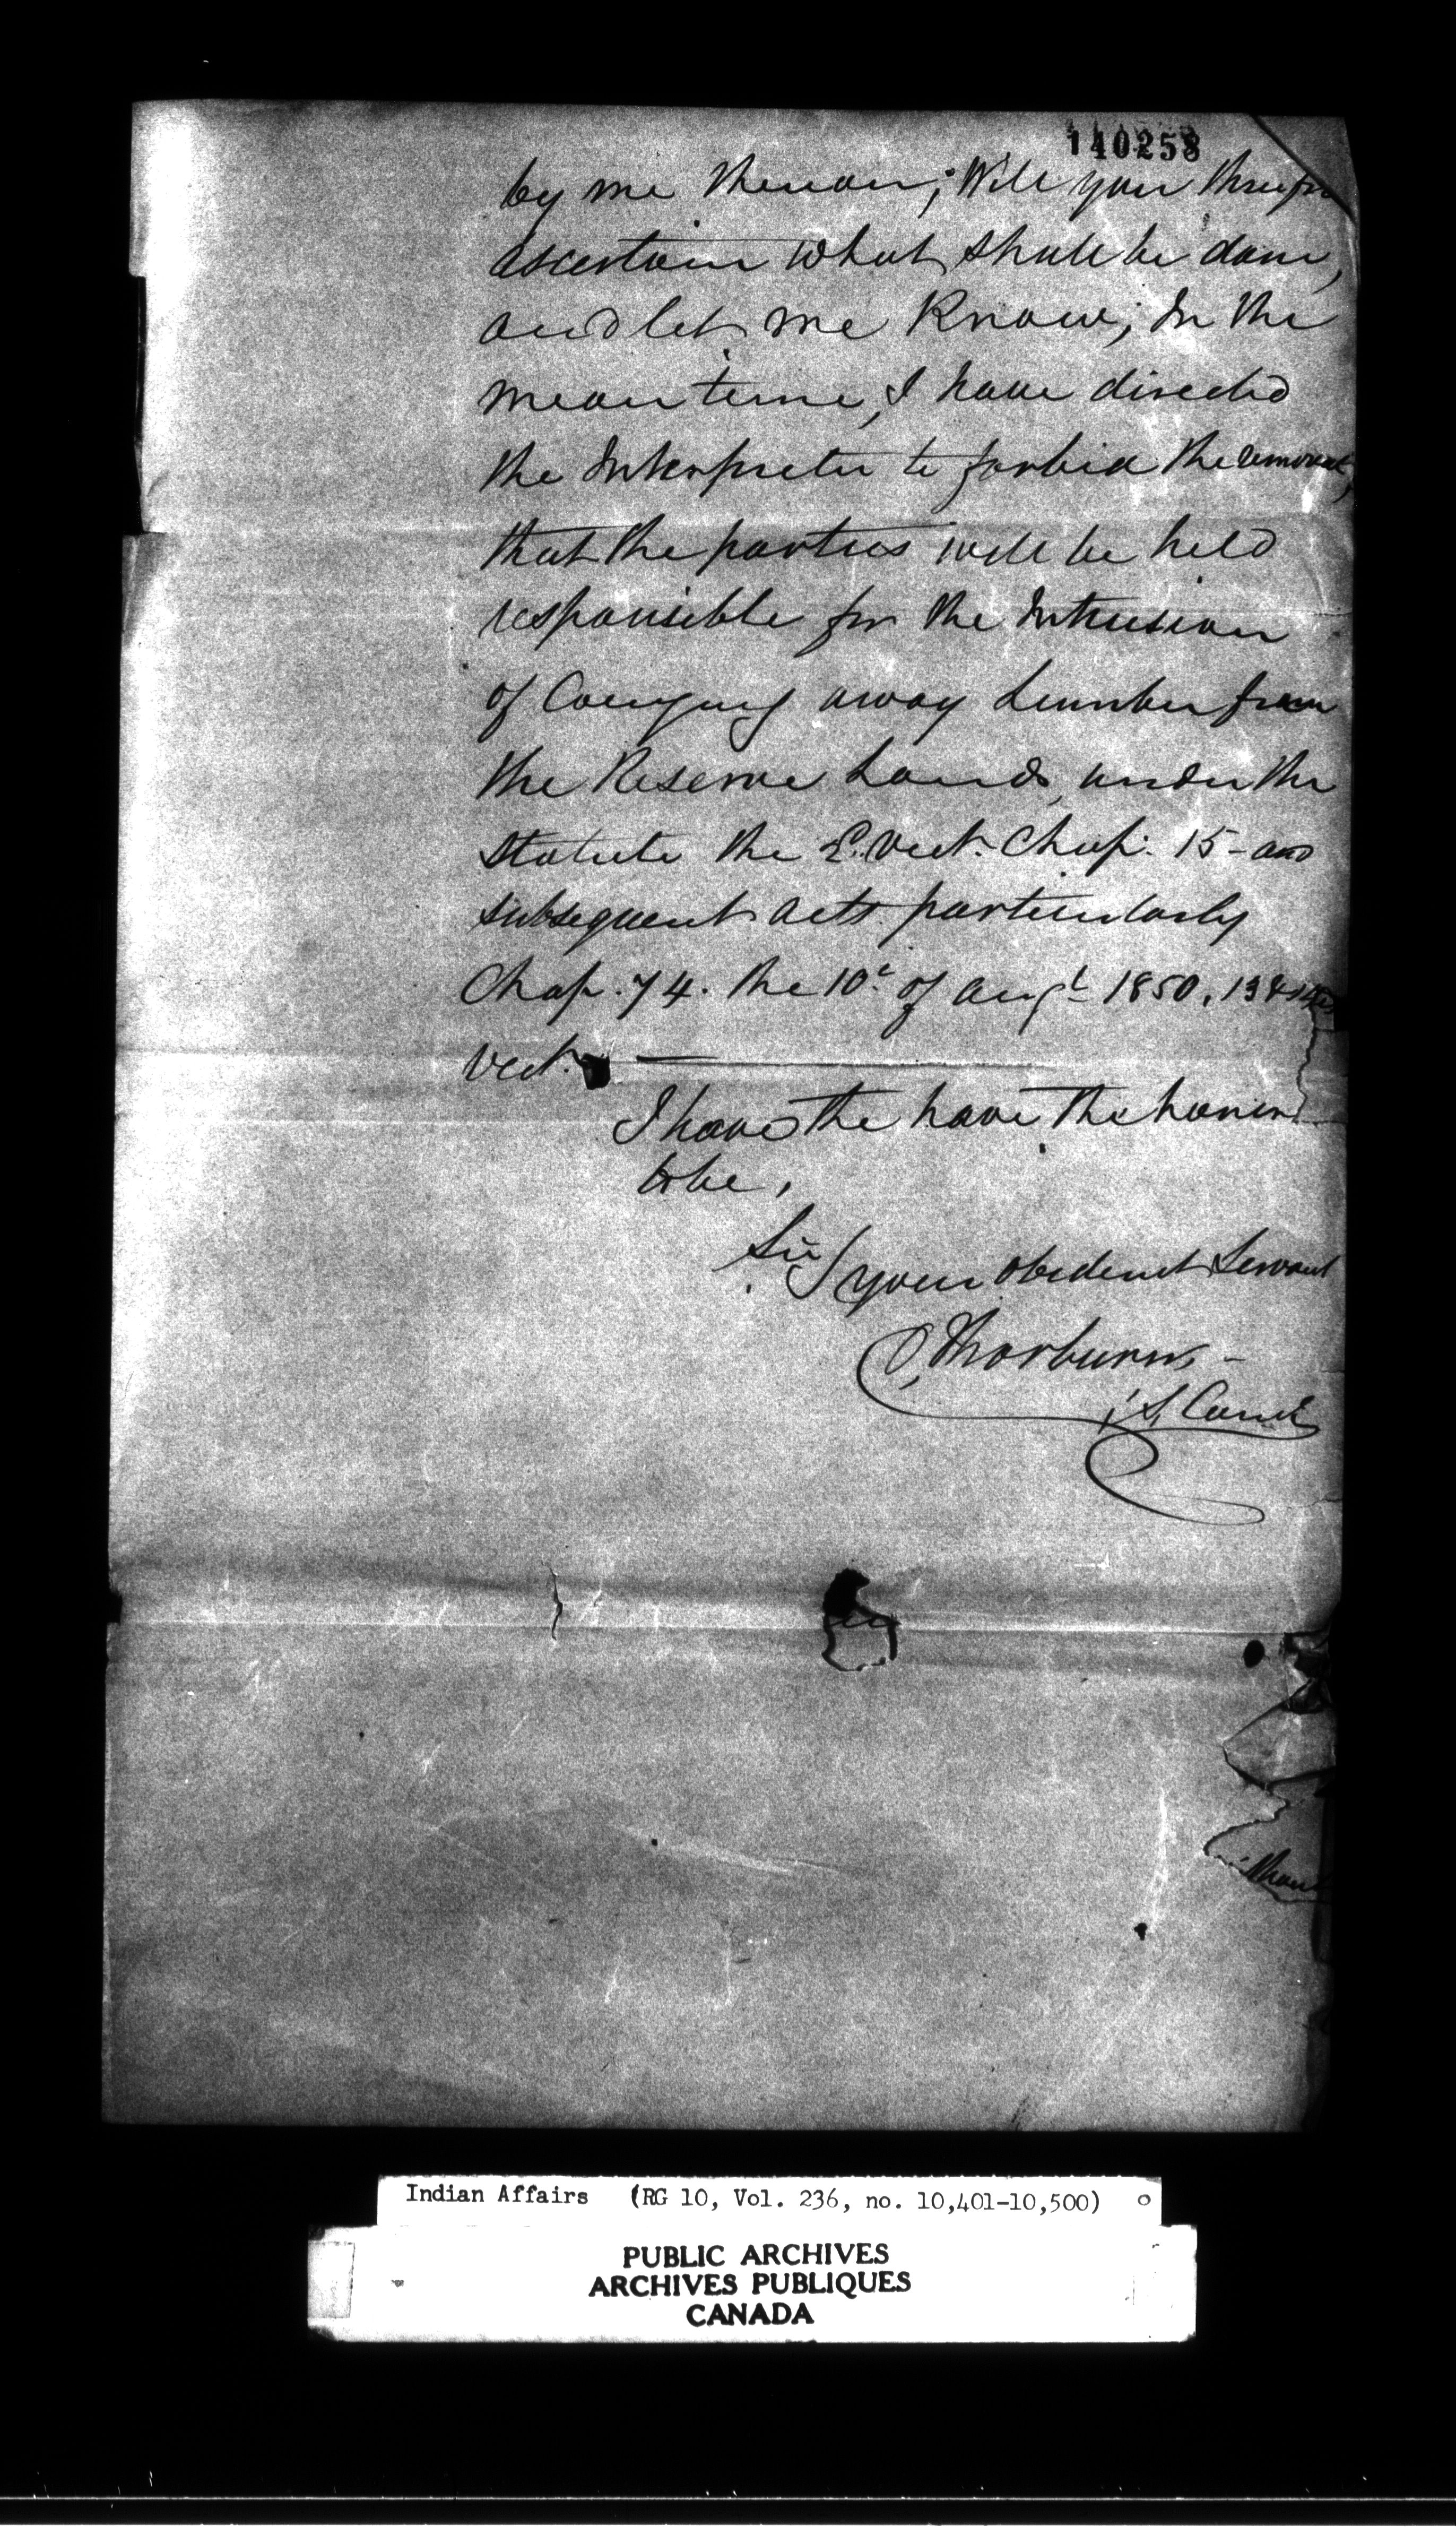 140253
by me thereon; Will you therefore
ascertain what shall be done,
and let me Know; In the
mean time, I have directed
the Interpreter to forbid the removal,
that the parties will be held
responsible for the Intrusion
of Carrying away Lumber from
the Reserve Lands, under the
Statute the 2. Vict. Chap. 15 - and
subsequent acts particularly
Chap. 74. the 10t of Augt 1850. 13 & 14
Vict. —
I have the have the honor
to be,
Sir,
your obedient Servant
D, Thorburn -
Indian Affairs (RG 10, Vol. 236, no. 10,401-10,500)
PUBLIC ARCHIVES
ARCHIVES PUBLIQUES
CANADA